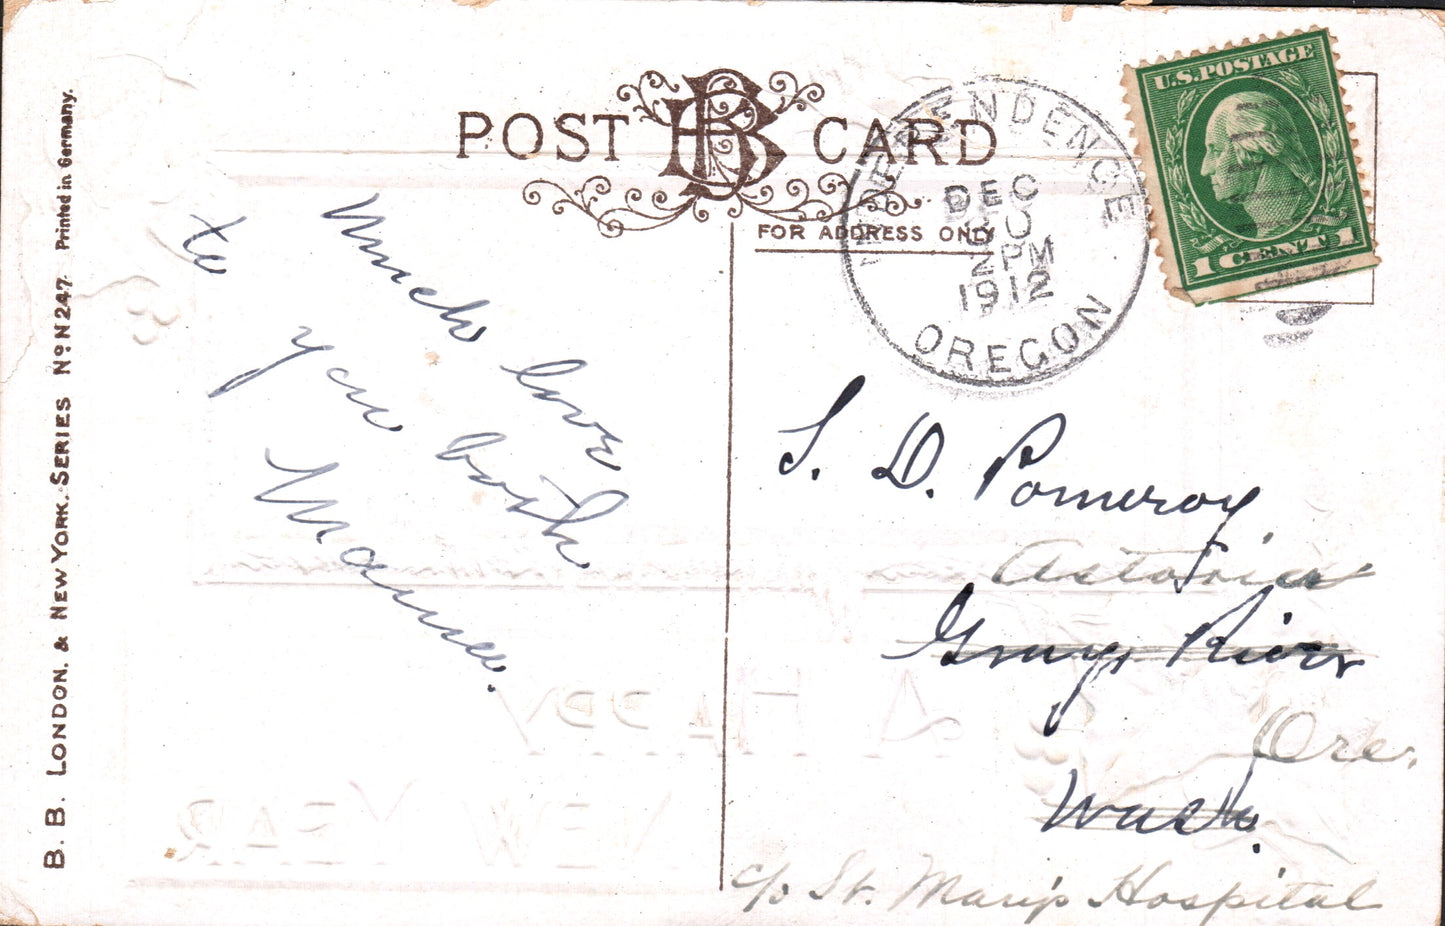 POST CARD
BB
FOR ADDRESS ONLY
INDEPENDENCE
DEC
30
2PM
1912
OREGON
U.S. POSTAGE
1 CENT 1
Much love
to you both
Mamma.
S. D. Pomeroy
Astoria
Grays River
Ore.
Wash.
c/o St. Mary's Hospital
B. B. LONDON. & NEW YORK. SERIES No N 247. Printed in Germany.
A HAPPY
NEW YEAR